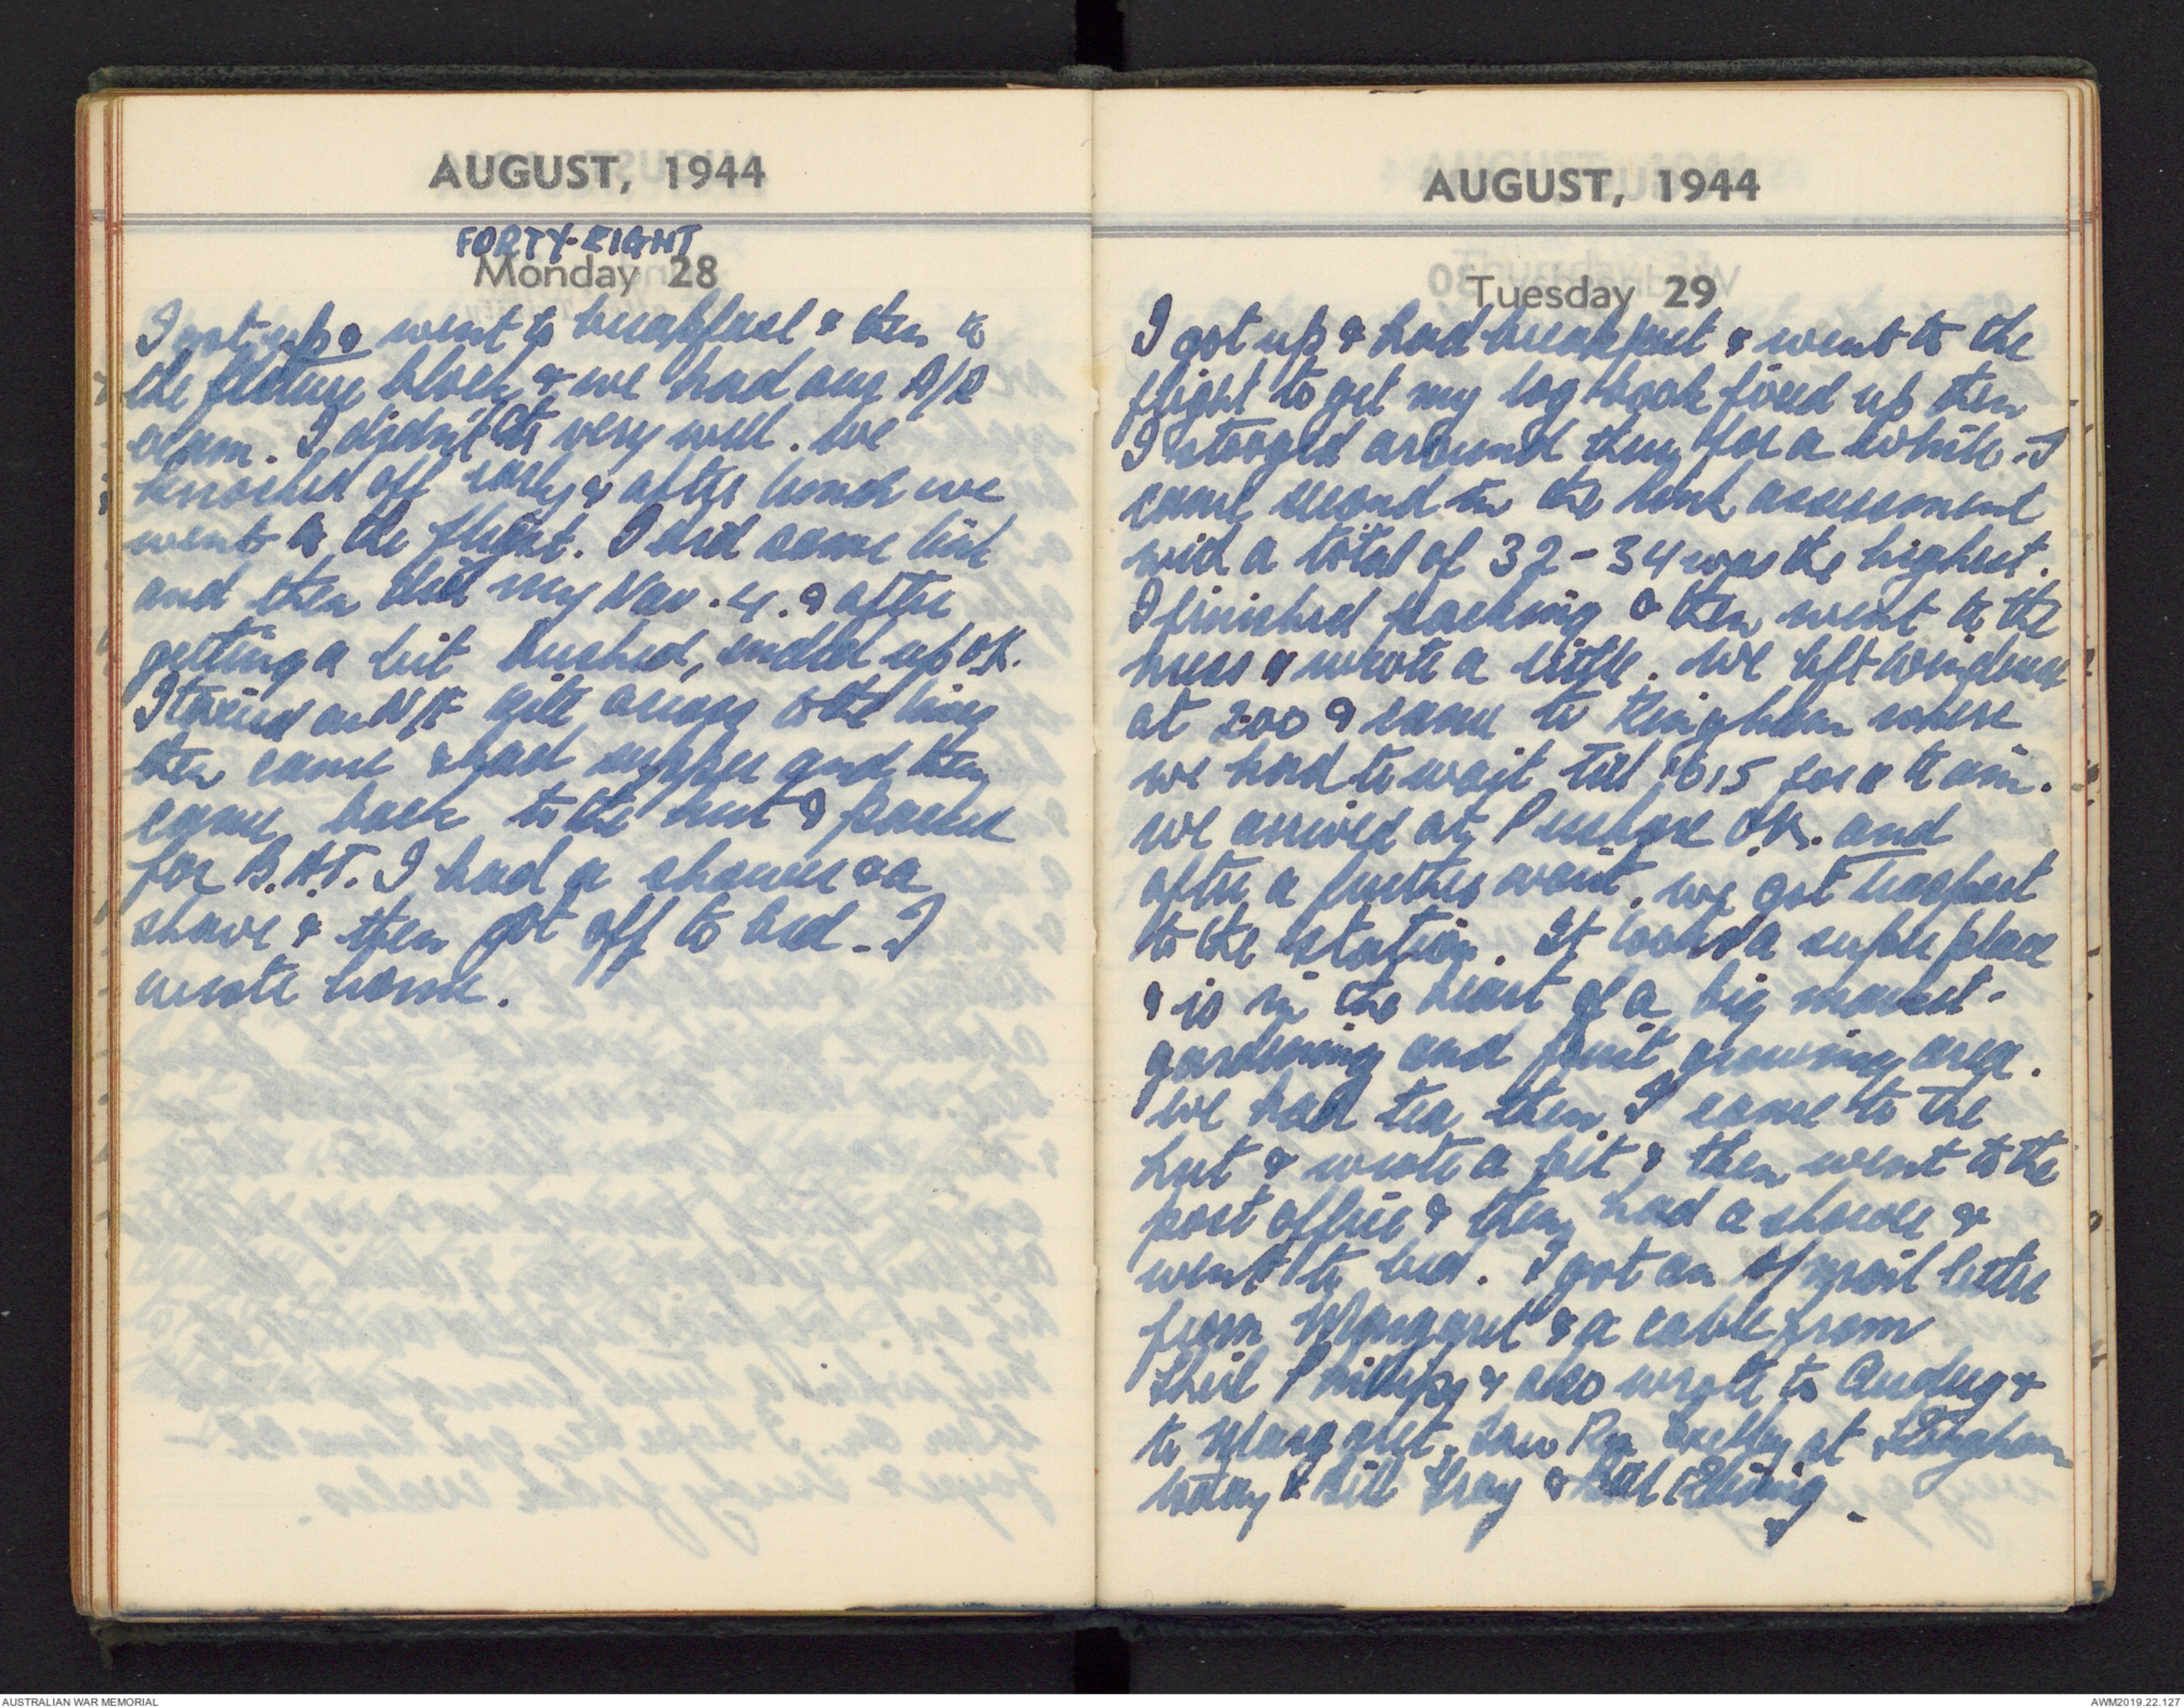 AUGUST, 1944
FORTY-EIGHT
Monday 28
I got up & went to breakfast & then to
the lecture block & we had our A/R
exam. I didn't do very well. We
knocked off early & after lunch we
went to the flight. I did some link
and then did my Nav. 4. & after
getting a bit bushed, ended up OK.
I taxied an A/F kite across to the
then came & had supper and then
came back to the hut & packed
for B.A.T. I had a shower & a
shave & then got off to bed - I
wrote home.
AUGUST, 1944
Tuesday 29
I got up & had breakfast & went to the
flight to get my log book fixed up then
I stooged around there for a while. I
came second in the link assessment
with a total of 32 - 34 was the highest.
I finished packing & then went to the
mess & wrote a little. We left Windrush
at 200 & came to Kingham where
we had to wait till 615 for a train.
We arrived at Pershore O.K. and
after a further wait, we got transport
to the station. It looks a super place
& is in the heart of a big market-
gardening and fruit growing area.
We had tea then I came to the
hut & wrote a bit & then went to the
post office & then had a shower &
went to bed. I got an A/mail letter
from Margaret & a cable from
Phillips & also wrote to Audrey &
to Margaret. Saw at Kingham
today & Bill Gray &
AUSTRALIAN WAR MEMORIAL
AWM2019.22.127